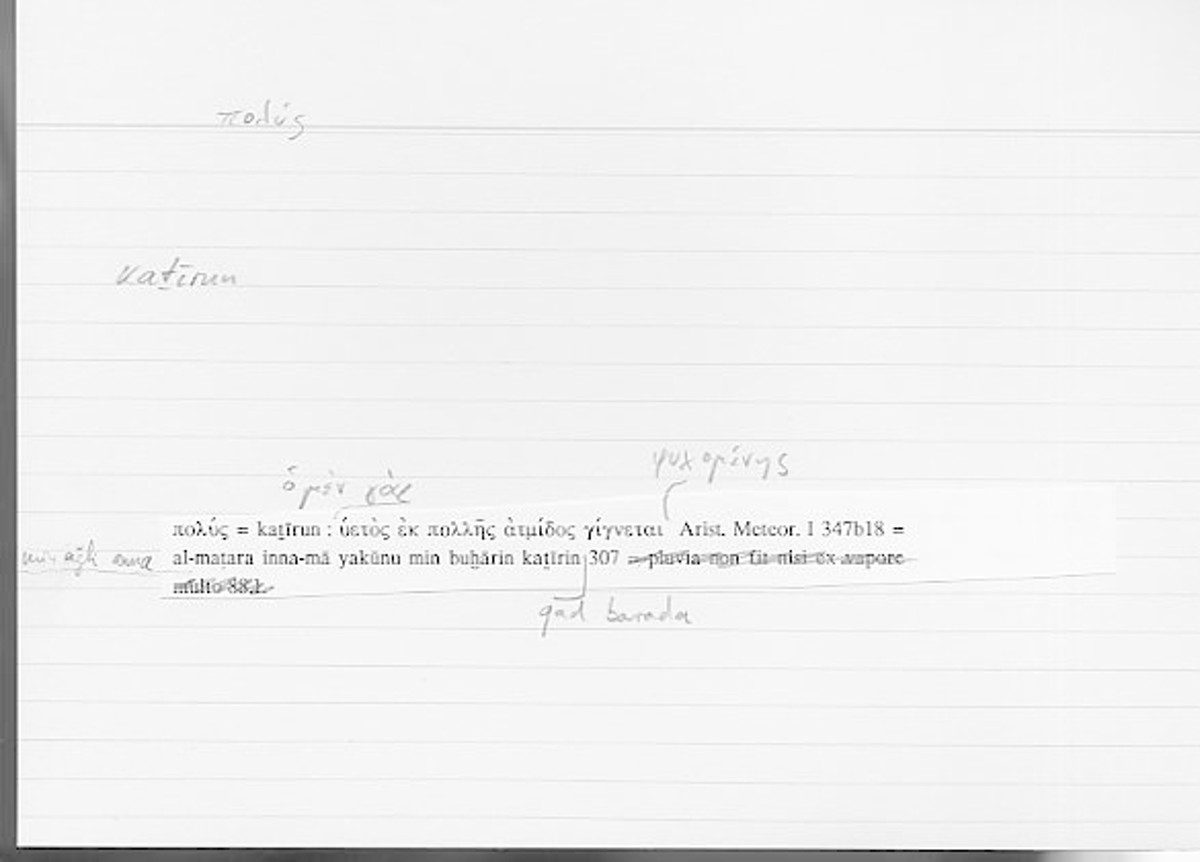 πολύς
kaṯīrun
ὁ μὲν γὰρ
ψυχομένης
πολύς = kaṯīrun : ὑετὸς ἐκ πολλῆς ἀτμίδος γίγνεται Arist. Meteor. I 347b18 =
min aǧli anna al-maṭara inna-mā yakūnu min buḫārin kaṯīrin 307 = pluvia non fit nisi ex vapore
multo 88,1.
qad barada